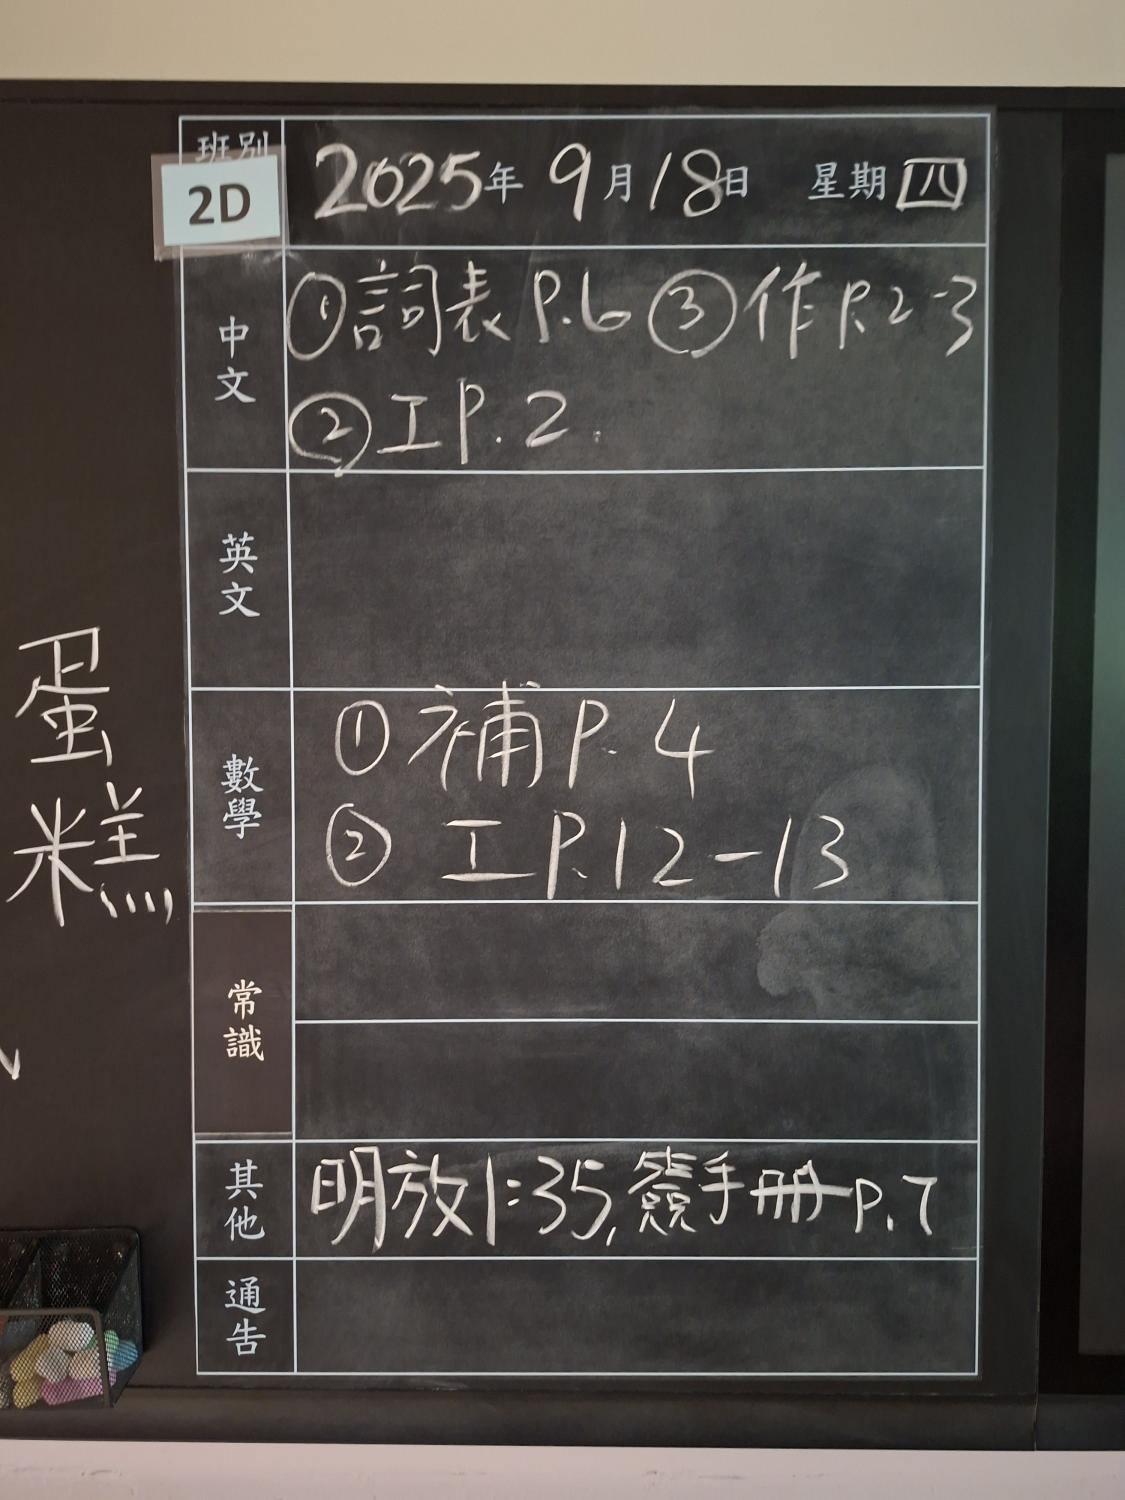 班別
2D
2025年 9月18日 星期四
中文
①詞表 P.6 ③作P.2-3
②工P.2.
英文
數學
①補P.4
②工P.12-13
常識
其他
明放1:35,簽手冊P.7
通告
蛋
糕